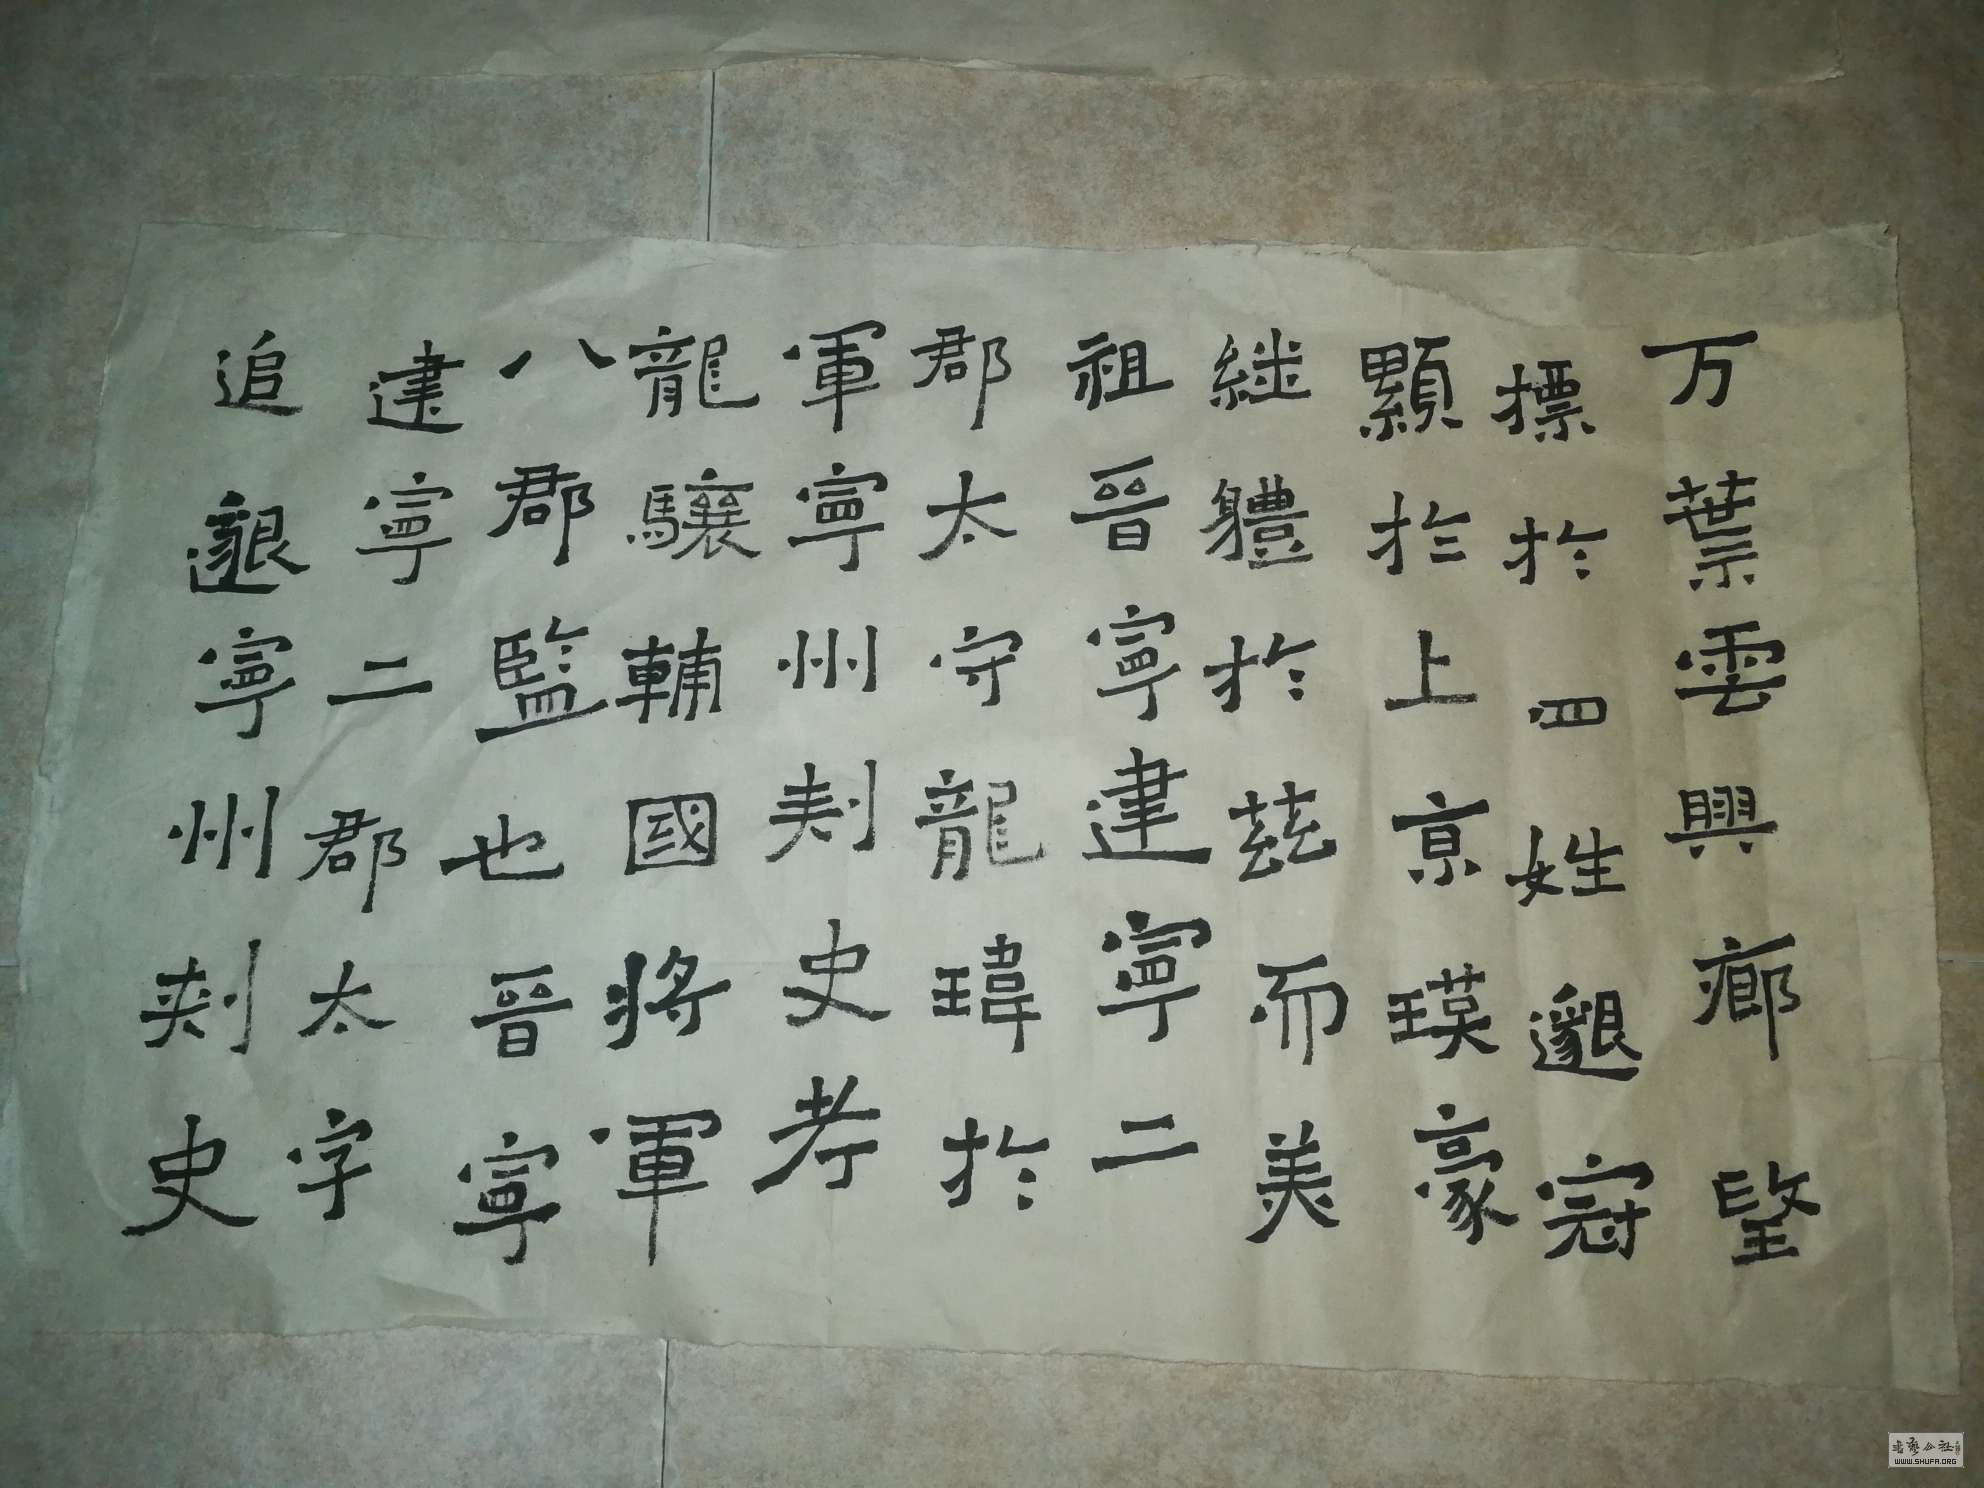 万葉雲興廊望
標於四姓邈冠
顯於上京瑛豪
継體於茲而美
祖晉寧建寧二
郡太守龍驤於
軍寧州刾史考
龍驤輔國將軍
八郡監也晉寧
建寧二郡太字
追邈寧州刾史
WWW.SHUFA.ORG